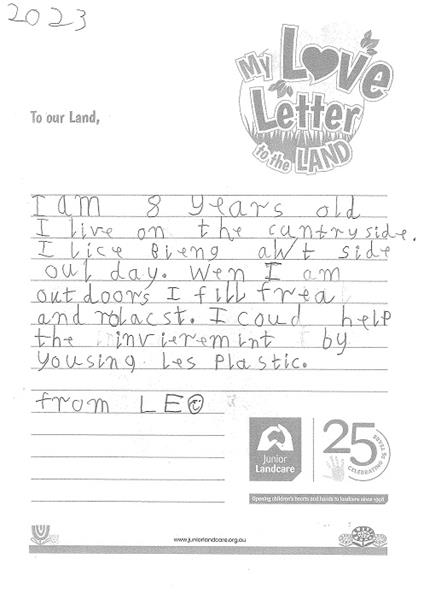 2023
My Love Letter to the LAND
To our Land,
I am 8 years old
I live on the cuntryside.
I lice Bieng awt side
oul day. Wen I am
outdoors I fill frea
and rolacst. I coud help
the invieremint by
yousing les Plastic.
from LEO
Junior Landcare
25
CELEBRATING 25 YEARS
Opening children's hearts and hands to landcare since 1998
www.juniorlandcare.org.au